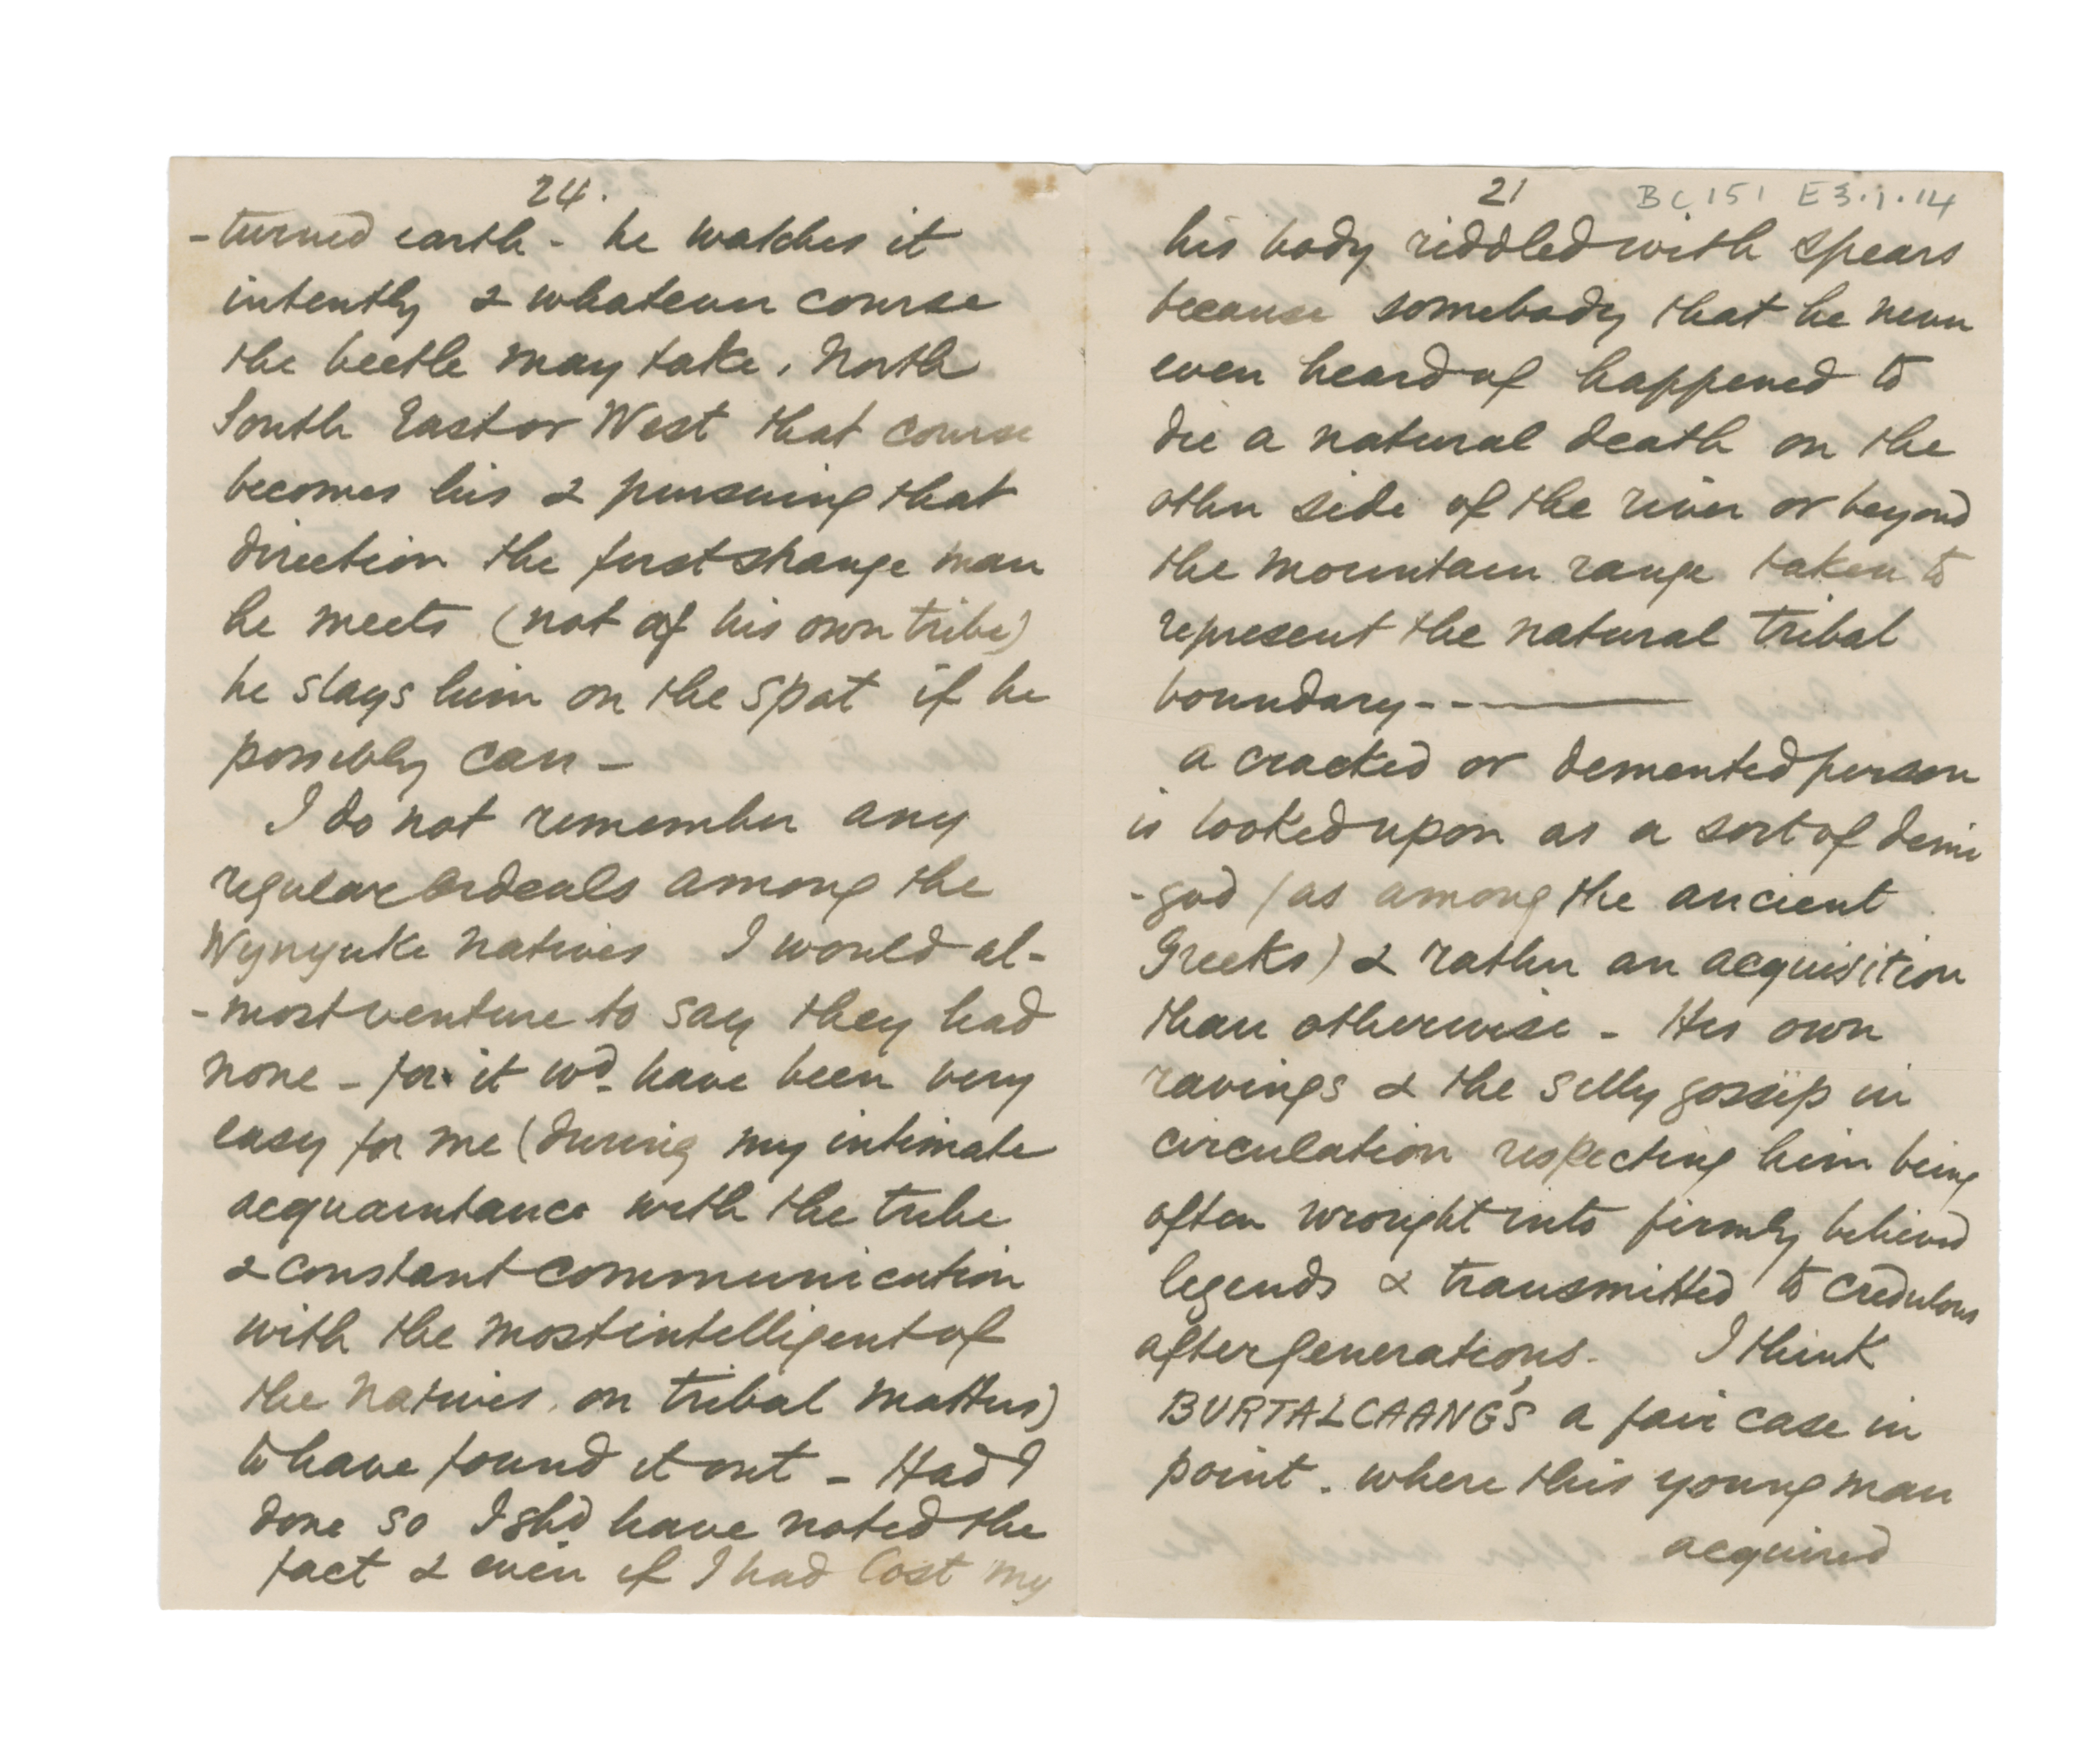 24.
-turned earth - he watches it
intently & whatever course
the beetle may take, North
South East or West that course
becomes his & pursuing that
direction the first strange man
he meets (not of his own tribe)
he slays him on the spot if he
possibly can -
I do not remember any
regular ordeals among the
Wynyuke natives I would al-
-most venture to say they had
none - for it wd. have been very
easy for me (during my intimate
acquaintance with the tribe
& constant communication
with the most intelligent of
the natives on tribal matters)
to have found it out - Had I
done so I shd have noted the
fact & even if I had lost my
21 BC 151 E3.1.14
his body riddled with spears
because somebody that he never
even heard of happened to
die a natural death on the
other side of the river or beyond
the mountain range taken to
represent the natural tribal
boundary - - ——
a cracked or demented person
is looked upon as a sort of demi
-god (as among the ancient
Greeks) & rather an acquisition
than otherwise - His own
ravings & the silly gossip in
circulation respecting him being
often wrought into firmly believed
legends & transmitted to credulous
after generations. I think
BURTALCAANG'S a fair case in
point. where this young man
acquired